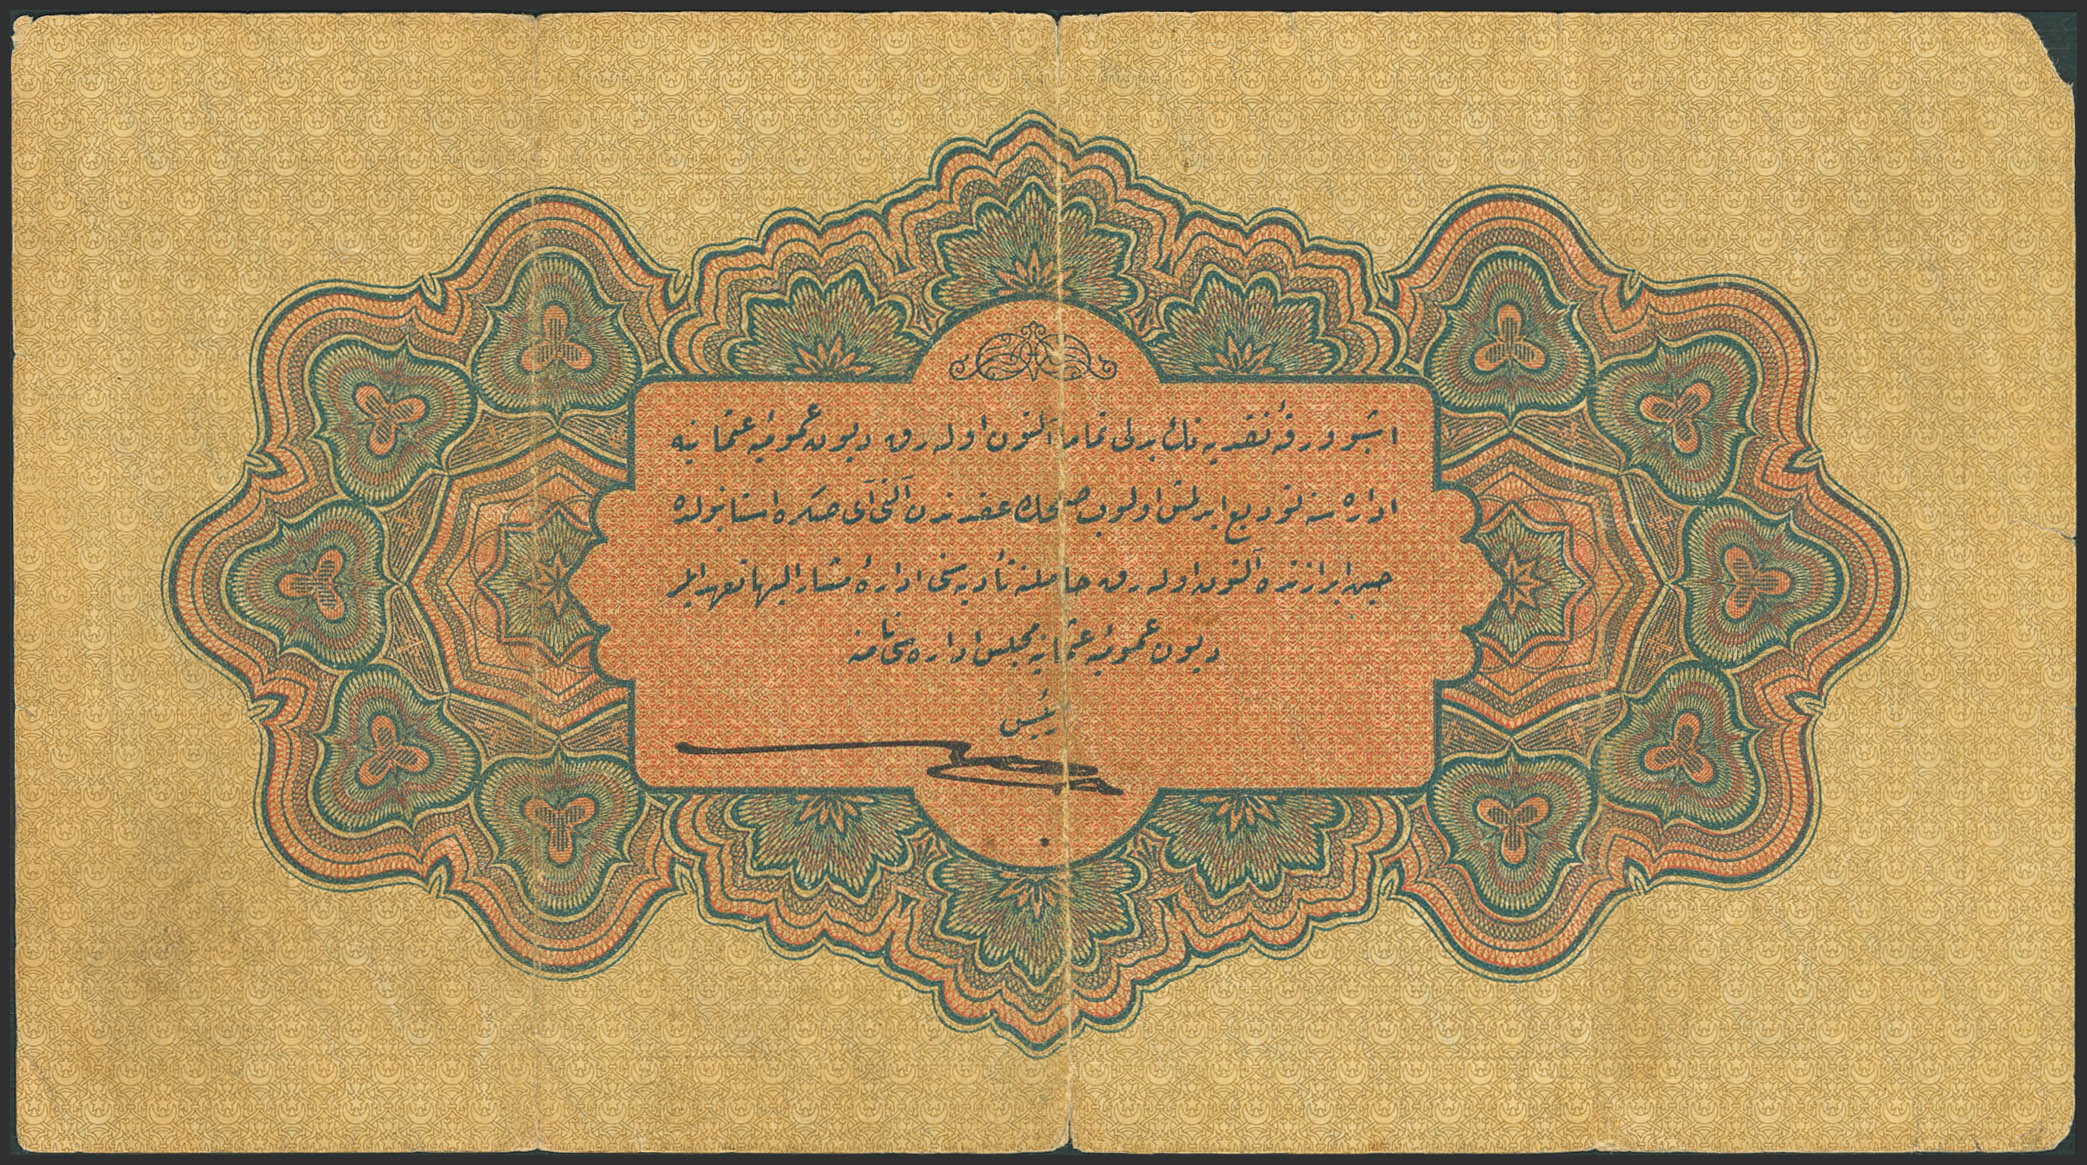 اشبو ورقهٔ نقدیه نك بدلی تماما آلتون اوله رق دیون عمومیهٔ عثمانیه
اداره سنه تودیع ایدلمش اولوب صلحك عقدندن آلتی آی صكره استانبولده
حین ابرازنده آلتون اوله رق حاملنه تأدیه سنی ادارهٔ مشار الیها تعهد ایلر
دیون عمومیهٔ عثمانیه مجلس اداره سی نامنه
رئیس